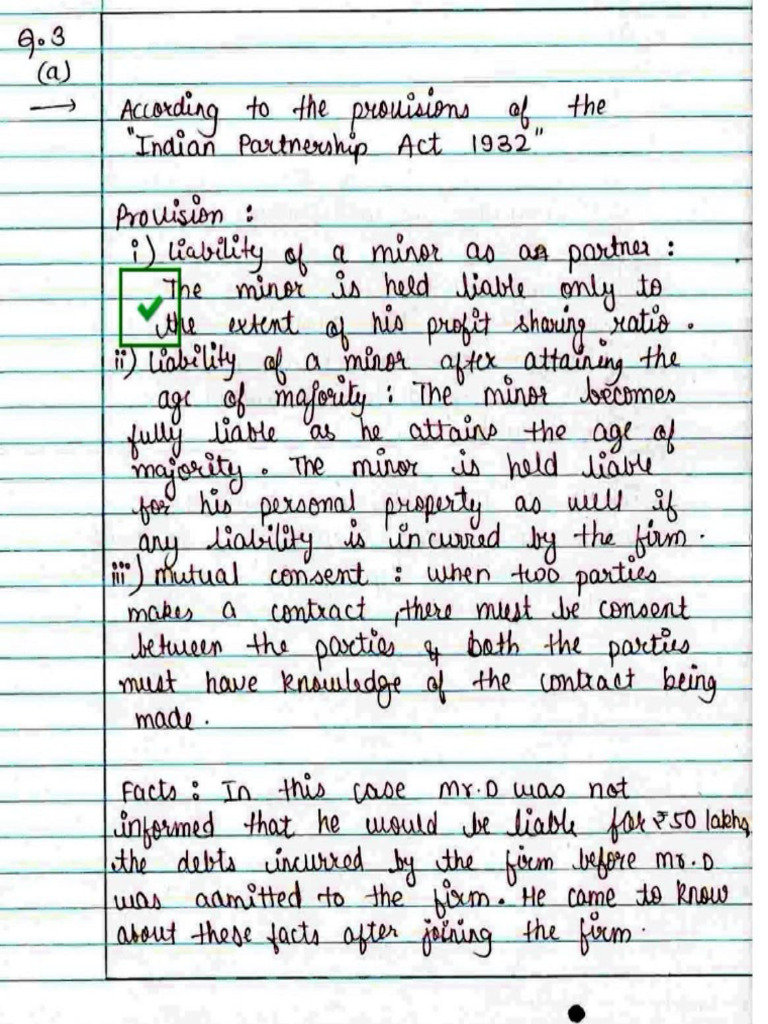 Q.3
(a)
→ According to the provisions of the
"Indian Partnership Act 1932"
Provision :
i) liability of a minor as a partner :
The minor is held liable only to
the extent of his profit sharing ratio.
ii) liability of a minor after attaining the
age of majority : The minor becomes
fully liable as he attains the age of
majority. The minor is held liable
for his personal property as well if
any liability is incurred by the firm.
iii) mutual consent : when two parties
makes a contract, there must be consent
between the parties & both the parties
must have knowledge of the contract being
made.
Facts : In this case Mr.D was not
informed that he would be liable for ₹50 lakhs,
the debts incurred by the firm before Mr.D
was admitted to the firm. He came to know
about these facts after joining the firm.